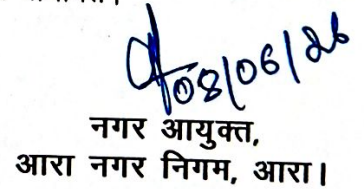 08/06/26
नगर आयुक्त,
आरा नगर निगम, आरा।